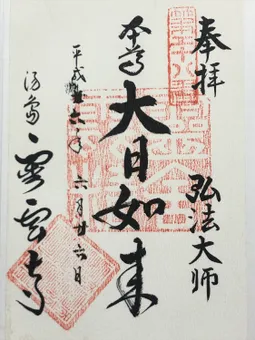 奉拝
弘法大師
本尊
大日如来
平成廿六年六月廿六日
湯島
霊雲寺